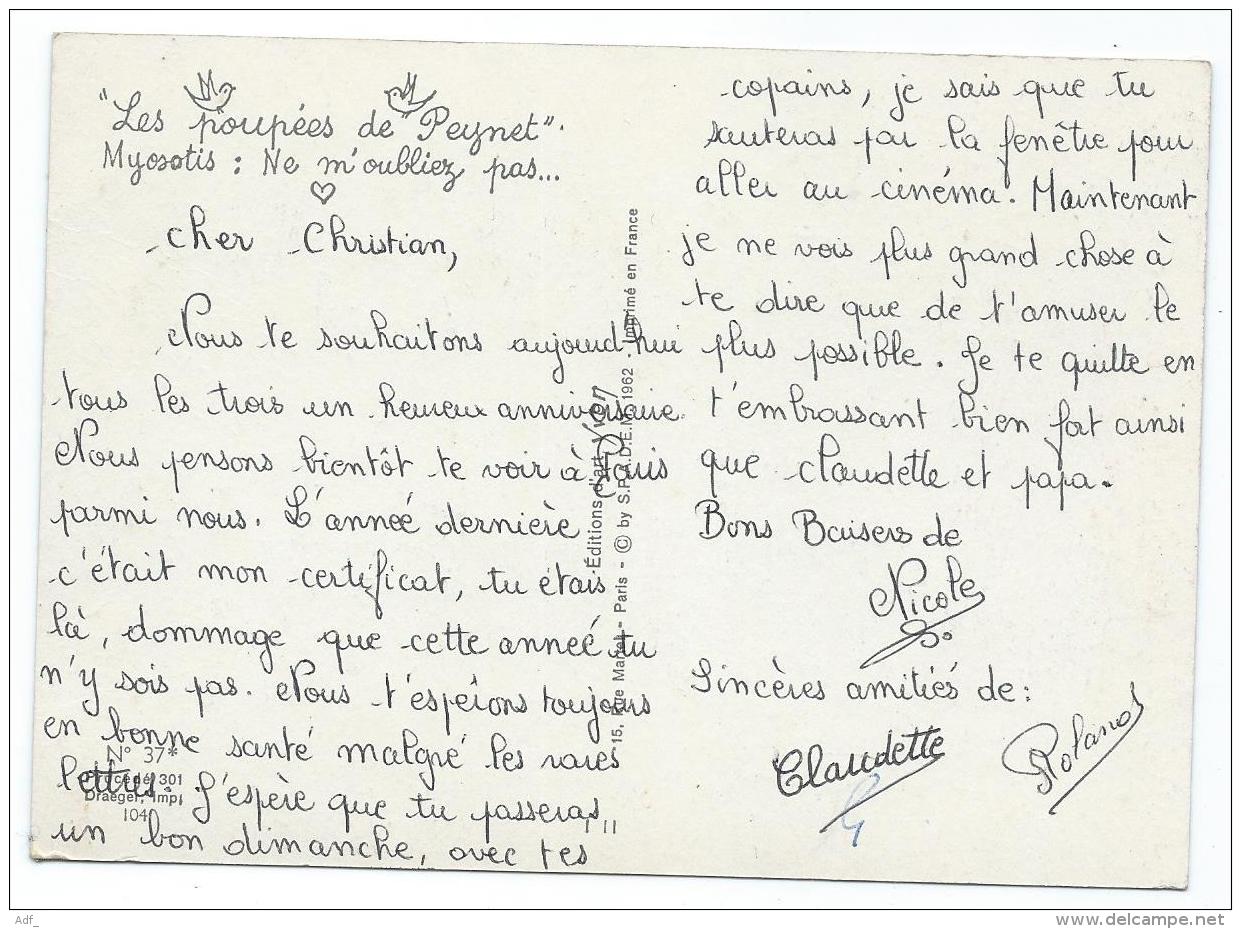 "Les poupées de Peynet".
Myosotis : Ne m'oubliez pas...
cher Christian,
Nous te souhaitons aujourd'hui
tous les trois un heureux anniversaire.
Nous pensons bientôt te voir à Paris
parmi nous. L'année dernière
c'était mon certificat, tu étais
là, dommage que cette anneé tu
n'y sois pas. Nous t'espérons toujours
en bonne santé malgré les rares
lettres. J'espère que tu passeras
un bon dimanche, avec tes
copains, je sais que tu
sauteras par la fenêtre pour
aller au cinéma. Maintenant
je ne vois plus grand chose à
te dire que de t'amuser le
plus possible. Je te quitte en
t'embrassant bien fort ainsi
que claudette et papa.
Bons Baisers de
Nicole
Sincères amitiés de :
Claudette
Roland
N° 37*
Procédé 301
Draeger, Imp.
104
Éditions d'art Yvon
15, Rue Martel - Paris - © by S.P.A.D.E.M. 1962 - Imprimé en France
Adf_
www.delcampe.net